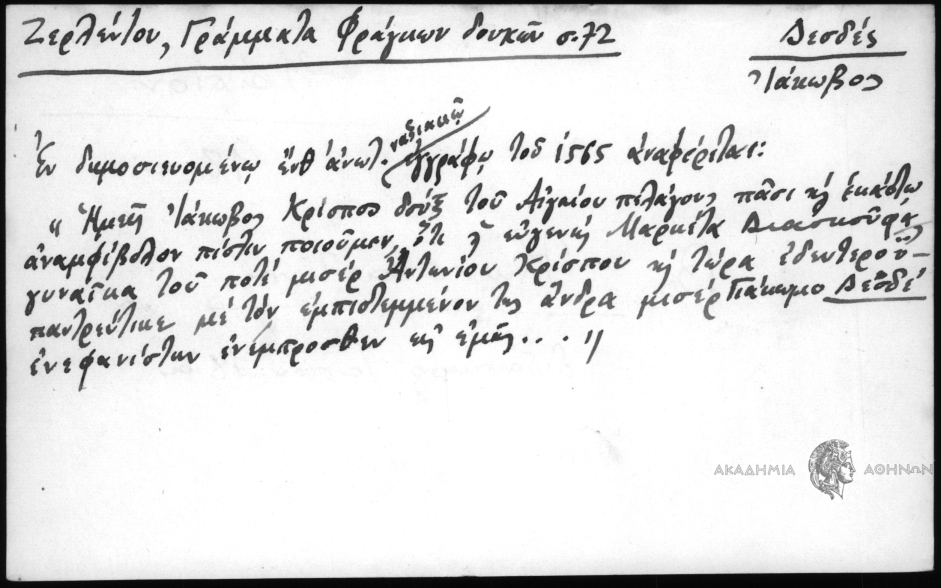 Ζερλέντου, Γράμματα Φράγκων δουκῶν σ.72
Δεσδές
Ἰάκωβος
Ἐν δημοσιευομένῳ ἔνθ' ἀνωτ. ναξιακῷ ἐγγράφῳ τοῦ 1565 ἀναφέρεται:
"Ἡμεῖς Ἰάκωβος Κρίσπος δούξ τοῦ Αἰγαίου πελάγους πᾶσι κὴ ἑκάστῳ
ἀναμφίβολον πίστιν ποιοῦμεν, ὅτι ἡ εὐγενής Μαργέτα Διασκούφα,
γυναῖκα τοῦ ποτέ μισέρ Ἀντωνίου Κρίσπου κὴ τώρα ἐδευτερου-
παντρεύτικε μέ τόν ἐμπιστεμμένον της ἄνδρα μισέρ Γιάκωμο Δεσδέ
ἐνεφανίστην ἐνέμπροσθεν εἰς ἐμᾶς... "
ΑΚΑΔΗΜΙΑ ΑΘΗΝΩΝ